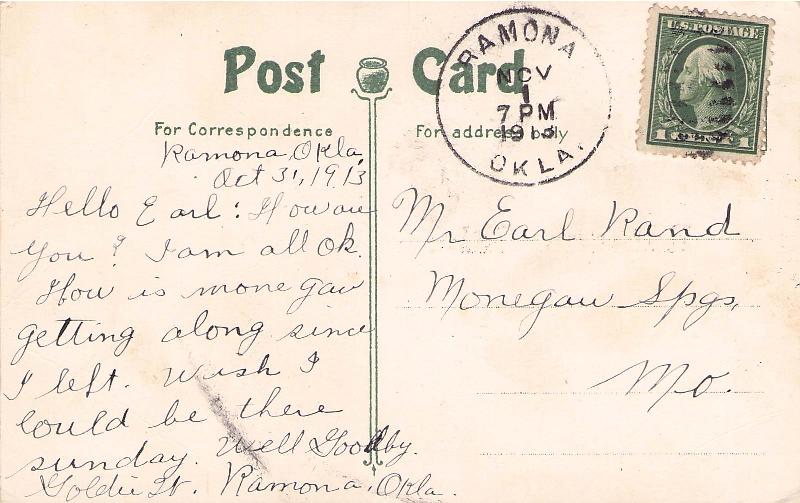 Post Card
For Correspondence
For address only
RAMONA
NOV
1
7 PM
1913
OKLA.
U.S. POSTAGE
1 CENT 1
Ramona, Okla,
Oct 31, 1913
Hello Earl: How are
you? I am all Ok.
How is monegaw
getting along since
I left. Wish I
could be there
sunday. Well Goodby.
Goldie St. Ramona, Okla.
Mr Earl Rand
Monegaw Spgs,
Mo.